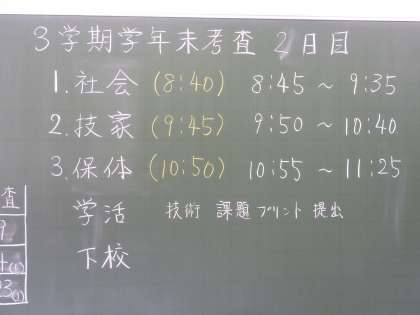 3学期学年末考査 2日目
1.社会 (8:40) 8:45 ~ 9:35
2.技家 (9:45) 9:50 ~ 10:40
3.保体 (10:50) 10:55 ~ 11:25
学活 技術 課題プリント 提出
下校
査